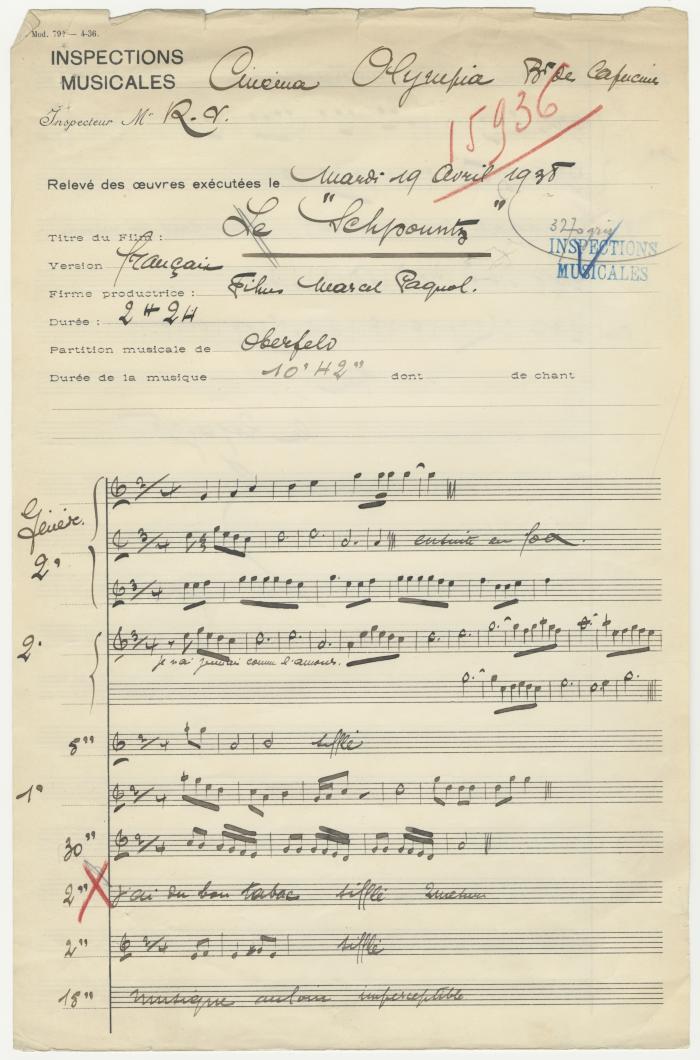 Mod. 791 — 4-36.
INSPECTIONS
MUSICALES
Cinéma Olympia Bd des Capucines
Inspecteur Mr R. V.
15936
Relevé des œuvres exécutées le Mardi 19 Avril 1938
Titre du Film : Le "Schpountz"
INSPECTIONS
MUSICALES
Version français
Firme productrice : Films Marcel Pagnol.
Durée : 2 H 24
Partition musicale de Oberfeld
Durée de la musique 10' 42" dont de chant
Génér.
ensuite en
2'
2'
je n'ai jamais connu l'amour.
5" sifflé
1'
30"
2" J'ai du bon tabac sifflé
2" sifflé
15" musique imperceptible